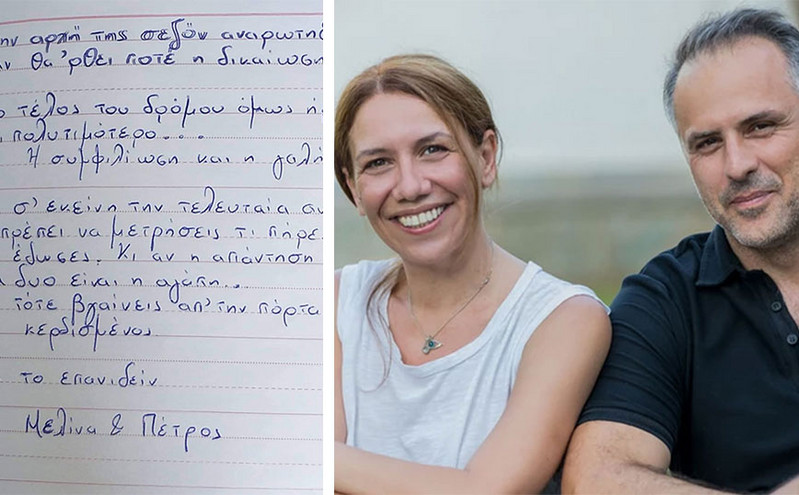 ην αρχή της σεζόν αναρωτηθ
ν θα 'ρθει ποτέ η δικαίωση
ο τέλος του δρόμου όμως ή
ι πολυτιμότερο...
Η συμφιλίωση και η γαλή
σ' εκείνη την τελευταία αν
πρέπει να μετρήσεις τι πήρε
έδωσες. Κι αν η απάντηση
α δυο είναι η αγάπη...
τότε βγαίνεις απ' την πόρτα
κερδισμένος
το επανιδείν
Μελίνα & Πέτρος